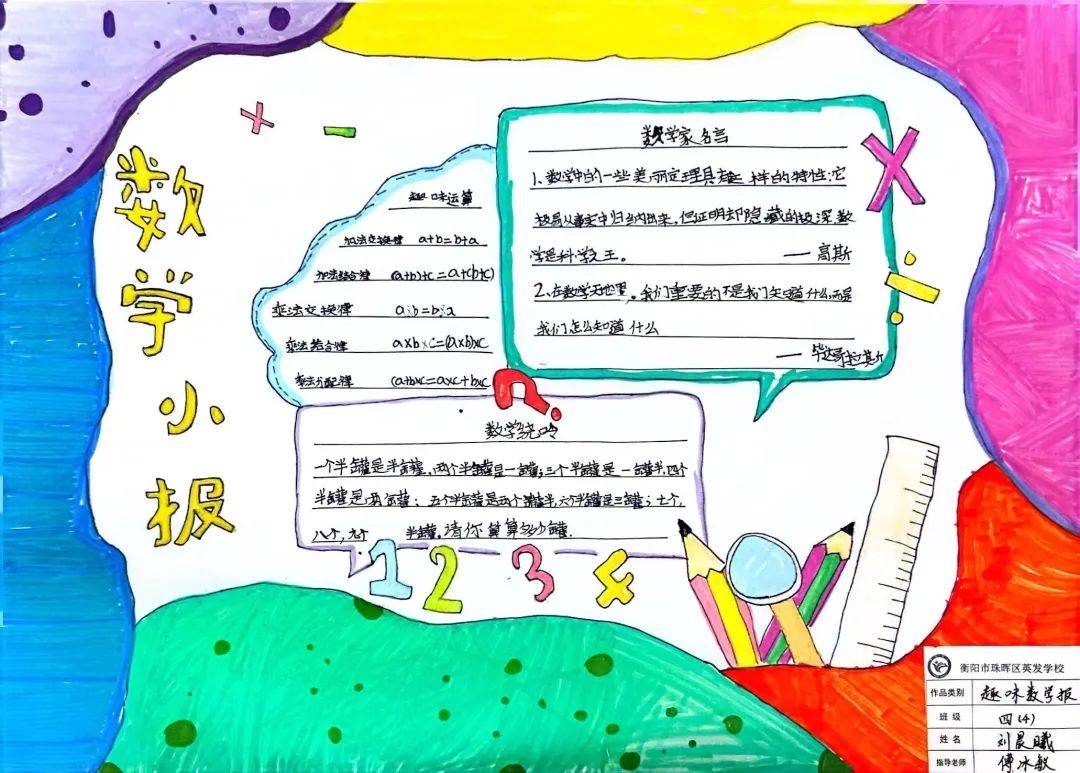 数学小报
趣味运算
加法交换律 a+b=b+a
加法结合律 (a+b)+c=a+(b+c)
乘法交换律 a×b=b×a
乘法结合律 a×b×c=(a×b)×c
乘法分配律 (a+b)×c=a×c+b×c
数学家名言
1、数学中的一些美丽定理具有 样的特性:它
极易从事实中归纳出来,但证明却隐藏的极深 数
学是科学之王。 —— 高斯
2、在数学天地里。我们重要的不是我们知道什么,而是
我们怎么知道什么
—— 毕达哥拉斯
?
数学绕口令
一个半罐是半罐,两个半罐是一罐;三个半罐是一罐半,四个
半罐是两罐;五个半罐是两个罐半,六个半罐是三罐;七个,
八个,九个 半罐。请你算算多少罐.
1 2 3 4
衡阳市珠晖区英发学校
作品类别 趣味数学报
班级 四(4)
姓名 刘晨曦
指导老师 傅冰敏